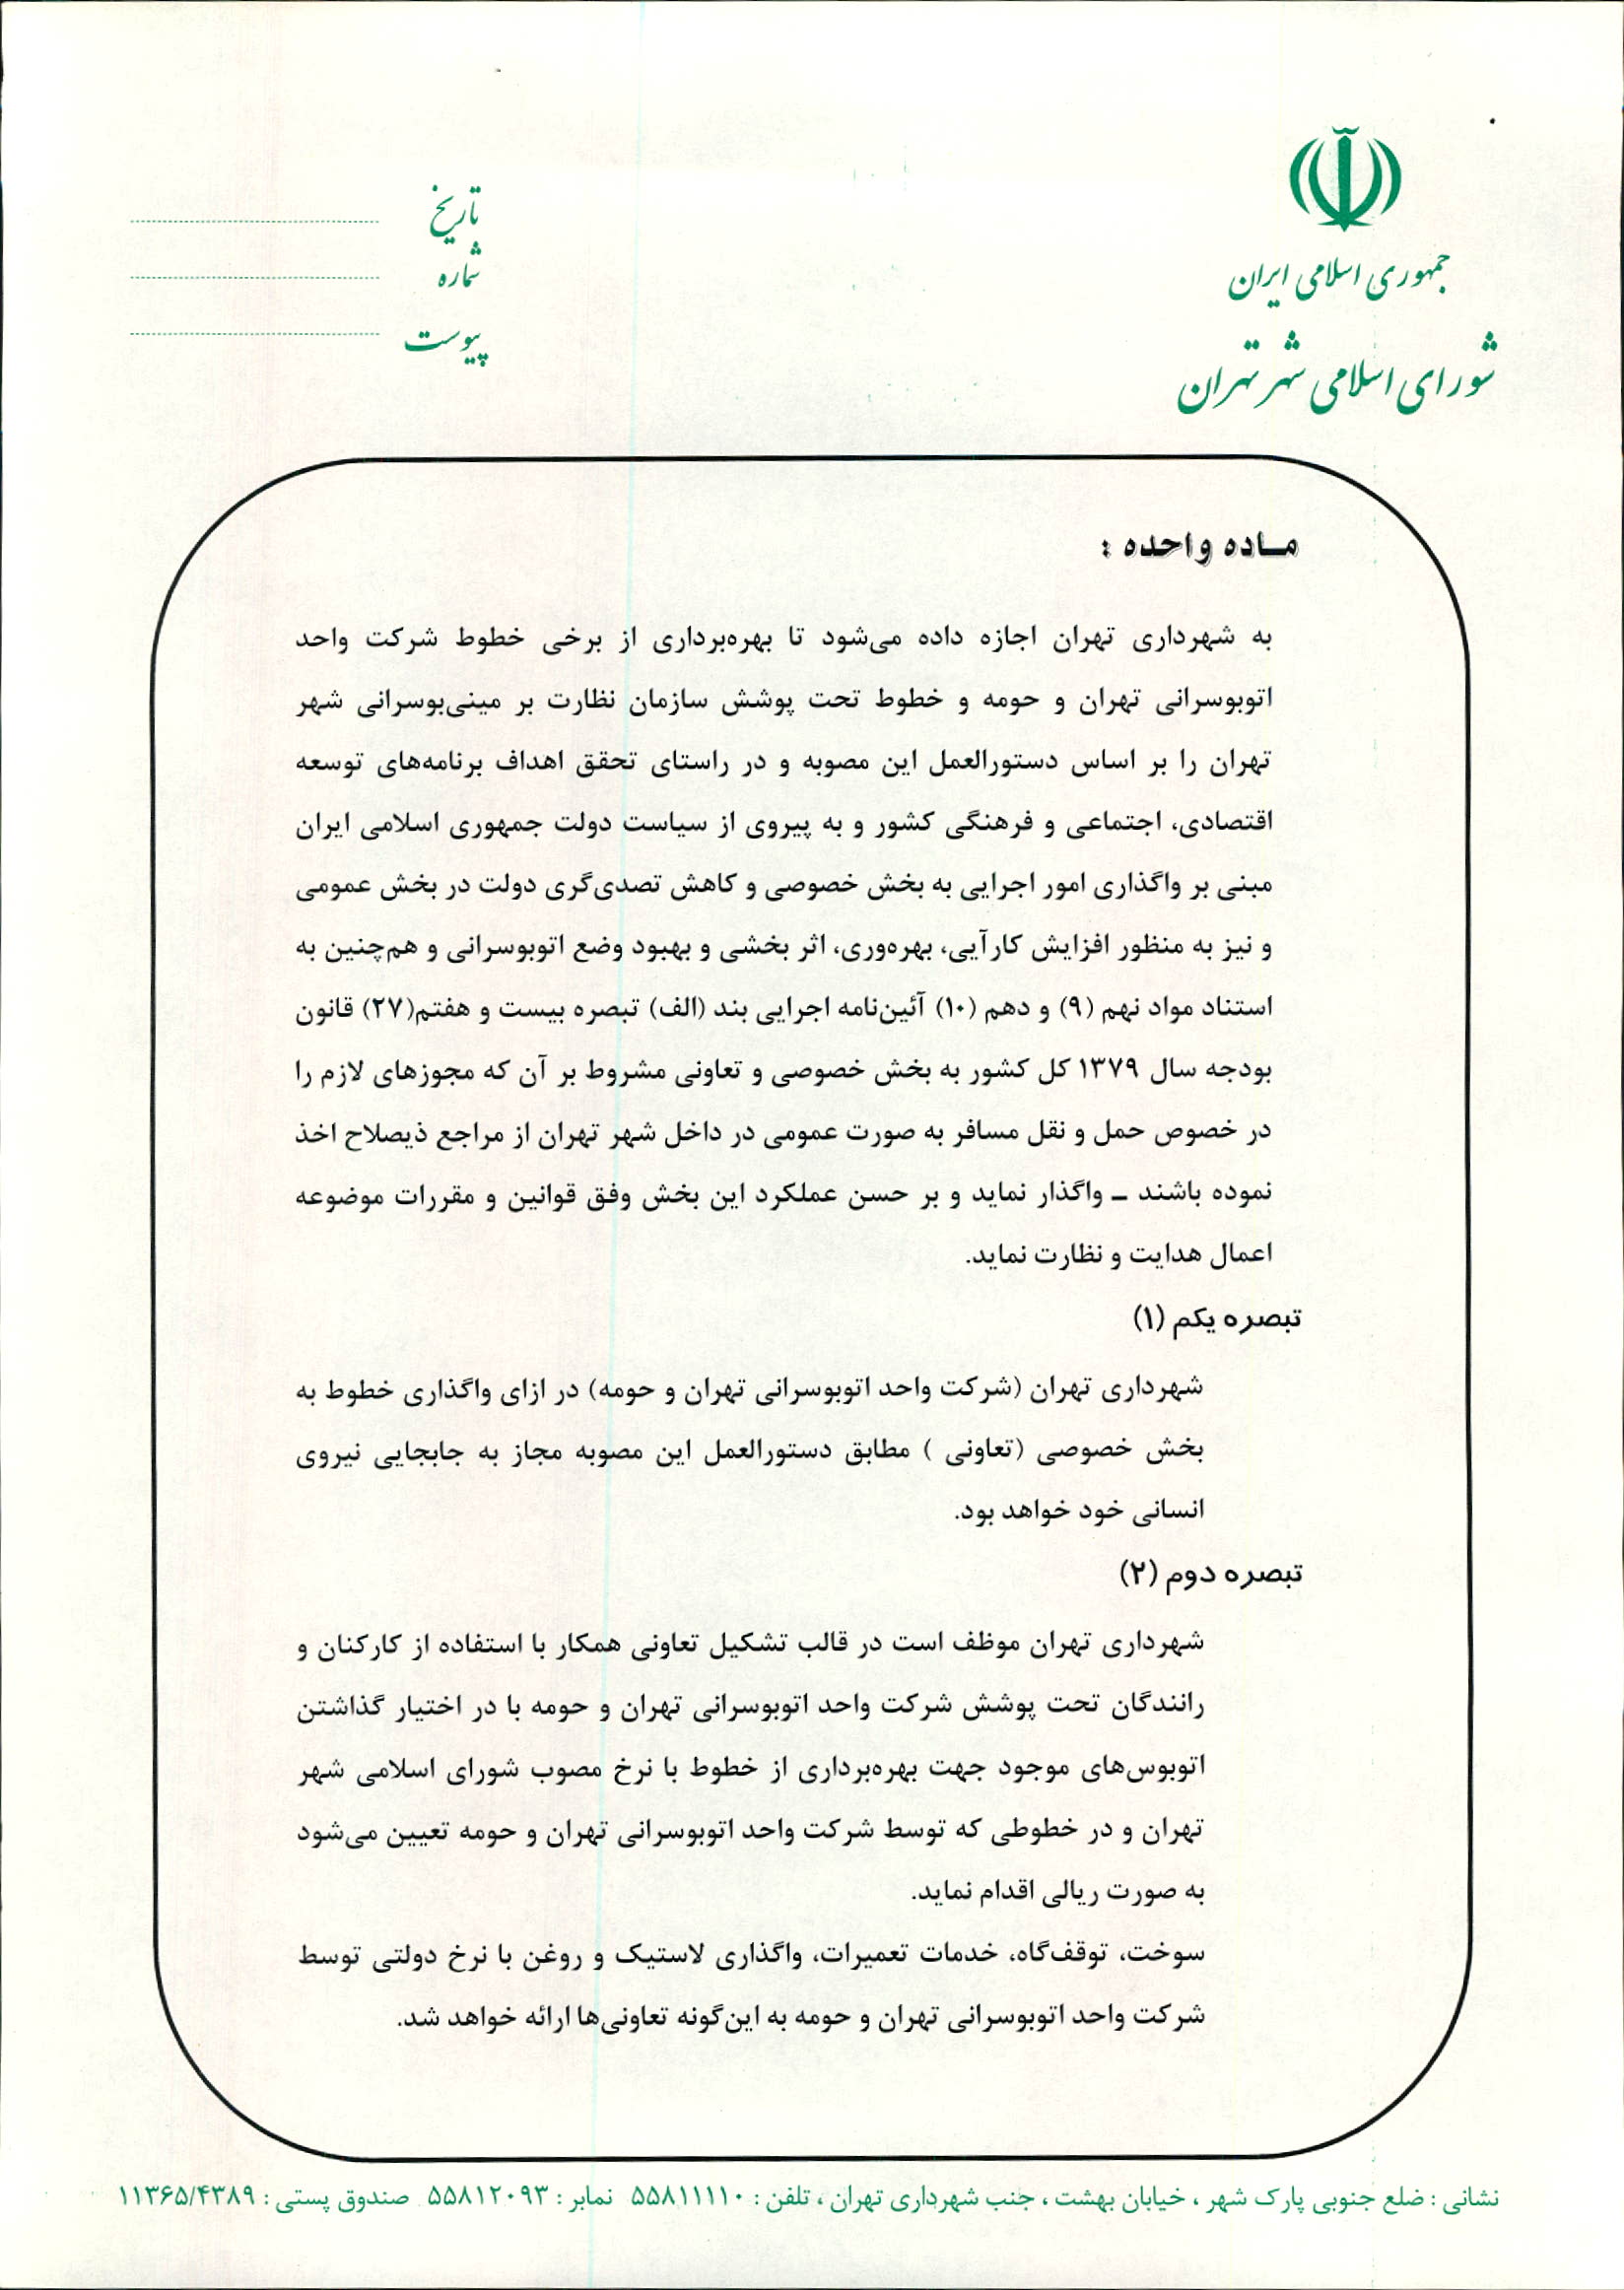 جمهوری اسلامی ایران
شورای اسلامی شهر تهران
تاریخ
شماره
پیوست
مـاده واحده :
به شهرداری تهران اجازه داده می‌شود تا بهره‌برداری از برخی خطوط شرکت واحد
اتوبوسرانی تهران و حومه و خطوط تحت پوشش سازمان نظارت بر مینی‌بوسرانی شهر
تهران را بر اساس دستورالعمل این مصوبه و در راستای تحقق اهداف برنامه‌های توسعه
اقتصادی، اجتماعی و فرهنگی کشور و به پیروی از سیاست دولت جمهوری اسلامی ایران
مبنی بر واگذاری امور اجرایی به بخش خصوصی و کاهش تصدی‌گری دولت در بخش عمومی
و نیز به منظور افزایش کارآیی، بهره‌وری، اثر بخشی و بهبود وضع اتوبوسرانی و هم‌چنین به
استناد مواد نهم (۹) و دهم (۱۰) آئین‌نامه اجرایی بند (الف) تبصره بیست و هفتم(۲۷) قانون
بودجه سال ۱۳۷۹ کل کشور به بخش خصوصی و تعاونی مشروط بر آن که مجوزهای لازم را
در خصوص حمل و نقل مسافر به صورت عمومی در داخل شهر تهران از مراجع ذیصلاح اخذ
نموده باشند ـ واگذار نماید و بر حسن عملکرد این بخش وفق قوانین و مقررات موضوعه
اعمال هدایت و نظارت نماید.
تبصره یکم (۱)
شهرداری تهران (شرکت واحد اتوبوسرانی تهران و حومه) در ازای واگذاری خطوط به
بخش خصوصی (تعاونی ) مطابق دستورالعمل این مصوبه مجاز به جابجایی نیروی
انسانی خود خواهد بود.
تبصره دوم (۲)
شهرداری تهران موظف است در قالب تشکیل تعاونی همکار با استفاده از کارکنان و
رانندگان تحت پوشش شرکت واحد اتوبوسرانی تهران و حومه با در اختیار گذاشتن
اتوبوس‌های موجود جهت بهره‌برداری از خطوط با نرخ مصوب شورای اسلامی شهر
تهران و در خطوطی که توسط شرکت واحد اتوبوسرانی تهران و حومه تعیین می‌شود
به صورت ریالی اقدام نماید.
سوخت، توقف‌گاه، خدمات تعمیرات، واگذاری لاستیک و روغن با نرخ دولتی توسط
شرکت واحد اتوبوسرانی تهران و حومه به این‌گونه تعاونی‌ها ارائه خواهد شد.
نشانی : ضلع جنوبی پارک شهر ، خیابان بهشت ، جنب شهرداری تهران ، تلفن : ۵۵۸۱۱۱۱۰ نمابر : ۵۵۸۱۲۰۹۳ صندوق پستی : ۱۱۳۶۵/۴۳۸۹